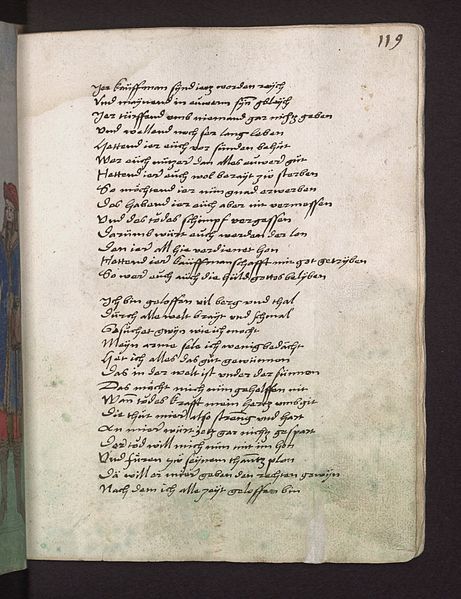 119
Ier kauffman synd ietz worden reych
Und maynand in euwerm syn gleych
Ier türffend umb niemand gar nichtz geben
Und wellend noch ser lang leben
Hettend ier euch vor sünden behüt
Wer euch nutzer dan alles euwer güt
Hettend ier euch wol berayt zü sterben
So möchtend ier nun gnad erwerben
Das habend ier euch aber nit vermessen
Und des todes schimpf vergessen
Darumb würt euch werden der lon
Den ier all hie verdienet hon
Hettend ier kauffmanschafft mit got getryben
So wer euch auch die huld gottes belyben
Ich bin geloffen vil berg und thal
Durch alle welt brayt und schmal
Gesuchet gwyn wie ich mocht
Meyn arme sele ich wenig bedacht
Het ich alles das güt gewunnen
Das in der welt ist under der sunnen
Das möcht mich nun gehelffen nit
Wan todes krafft mein hertz umbgit
Die thüt mier also streng und hart
An mier würt ietz gar nichtz gespart
Der tod will mich nun nit im hon
Und füren zü seynem thantz plon
Da will er mier geben den rechten gewyn
Nach dem ich alle zeyt geloffen bin